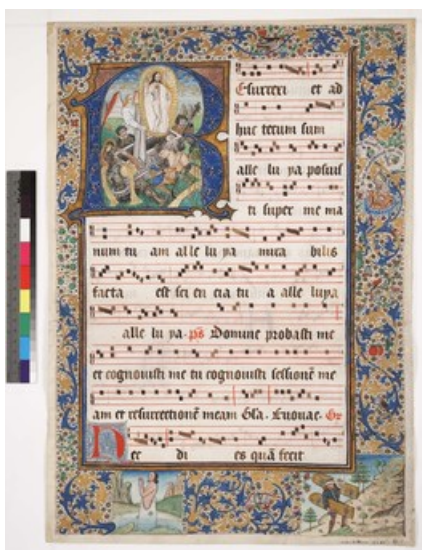 Esurrexi et ad
huc tecum sum
alle lu ya posuis
ti super me ma
num tu am alle lu ya mira bilis
facta est sci en cia tu a alle luya
alle lu ya. ps Domine probasti me
et cognovisti me tu cognovisti sessionē me
am et resurrectionē meam Gla. Euouae. Gr
Nec di es quā fecit